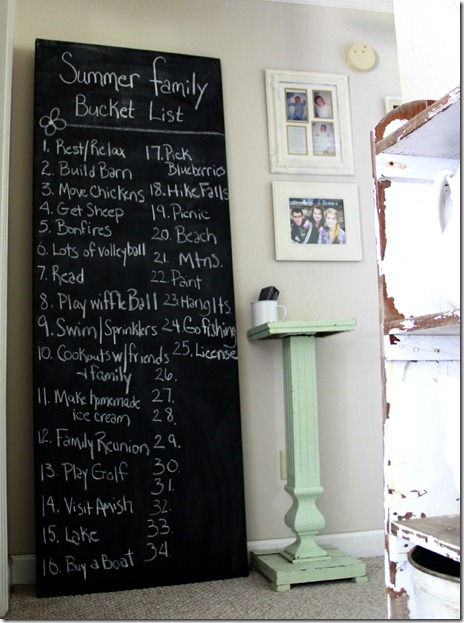 Summer family
Bucket List
1. Rest/Relax
2. Build Barn
3. Move Chickens
4. Get Sheep
5. Bonfires
6. Lots of volleyball
7. Read
8. Play wiffle Ball
9. Swim/Sprinklers
10. Cookouts w/friends
+ family
11. Make homemade
ice cream
12. Family Reunion
13. Play Golf
14. Visit Amish
15. Lake
16. Buy a Boat
17. Pick
Blueberries
18. Hike Falls
19. Picnic
20. Beach
21. Mtns.
22. Paint
23 Hang Its
24. Go fishing
25. License
26.
27.
28.
29.
30.
31.
32.
33.
34.